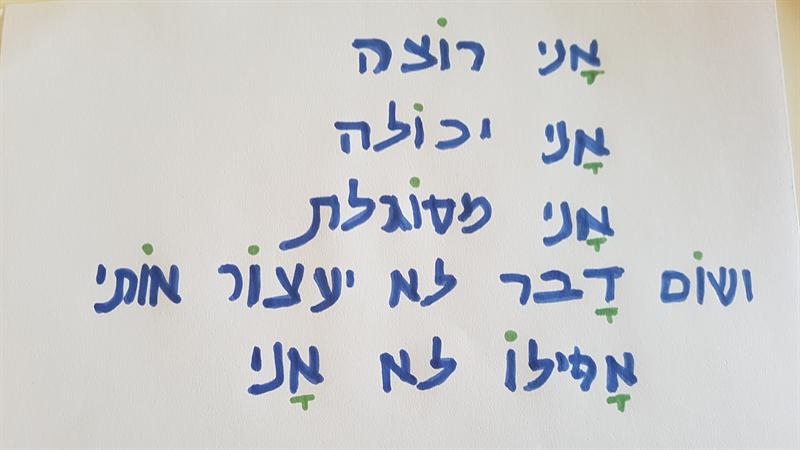 אָני רוֹצה
אָני יכוֹלה
אָני מסוֹגלת
ושוֹם דָבר לא יעצוֹר אוֹתי
אָפילוֹ לא אָני